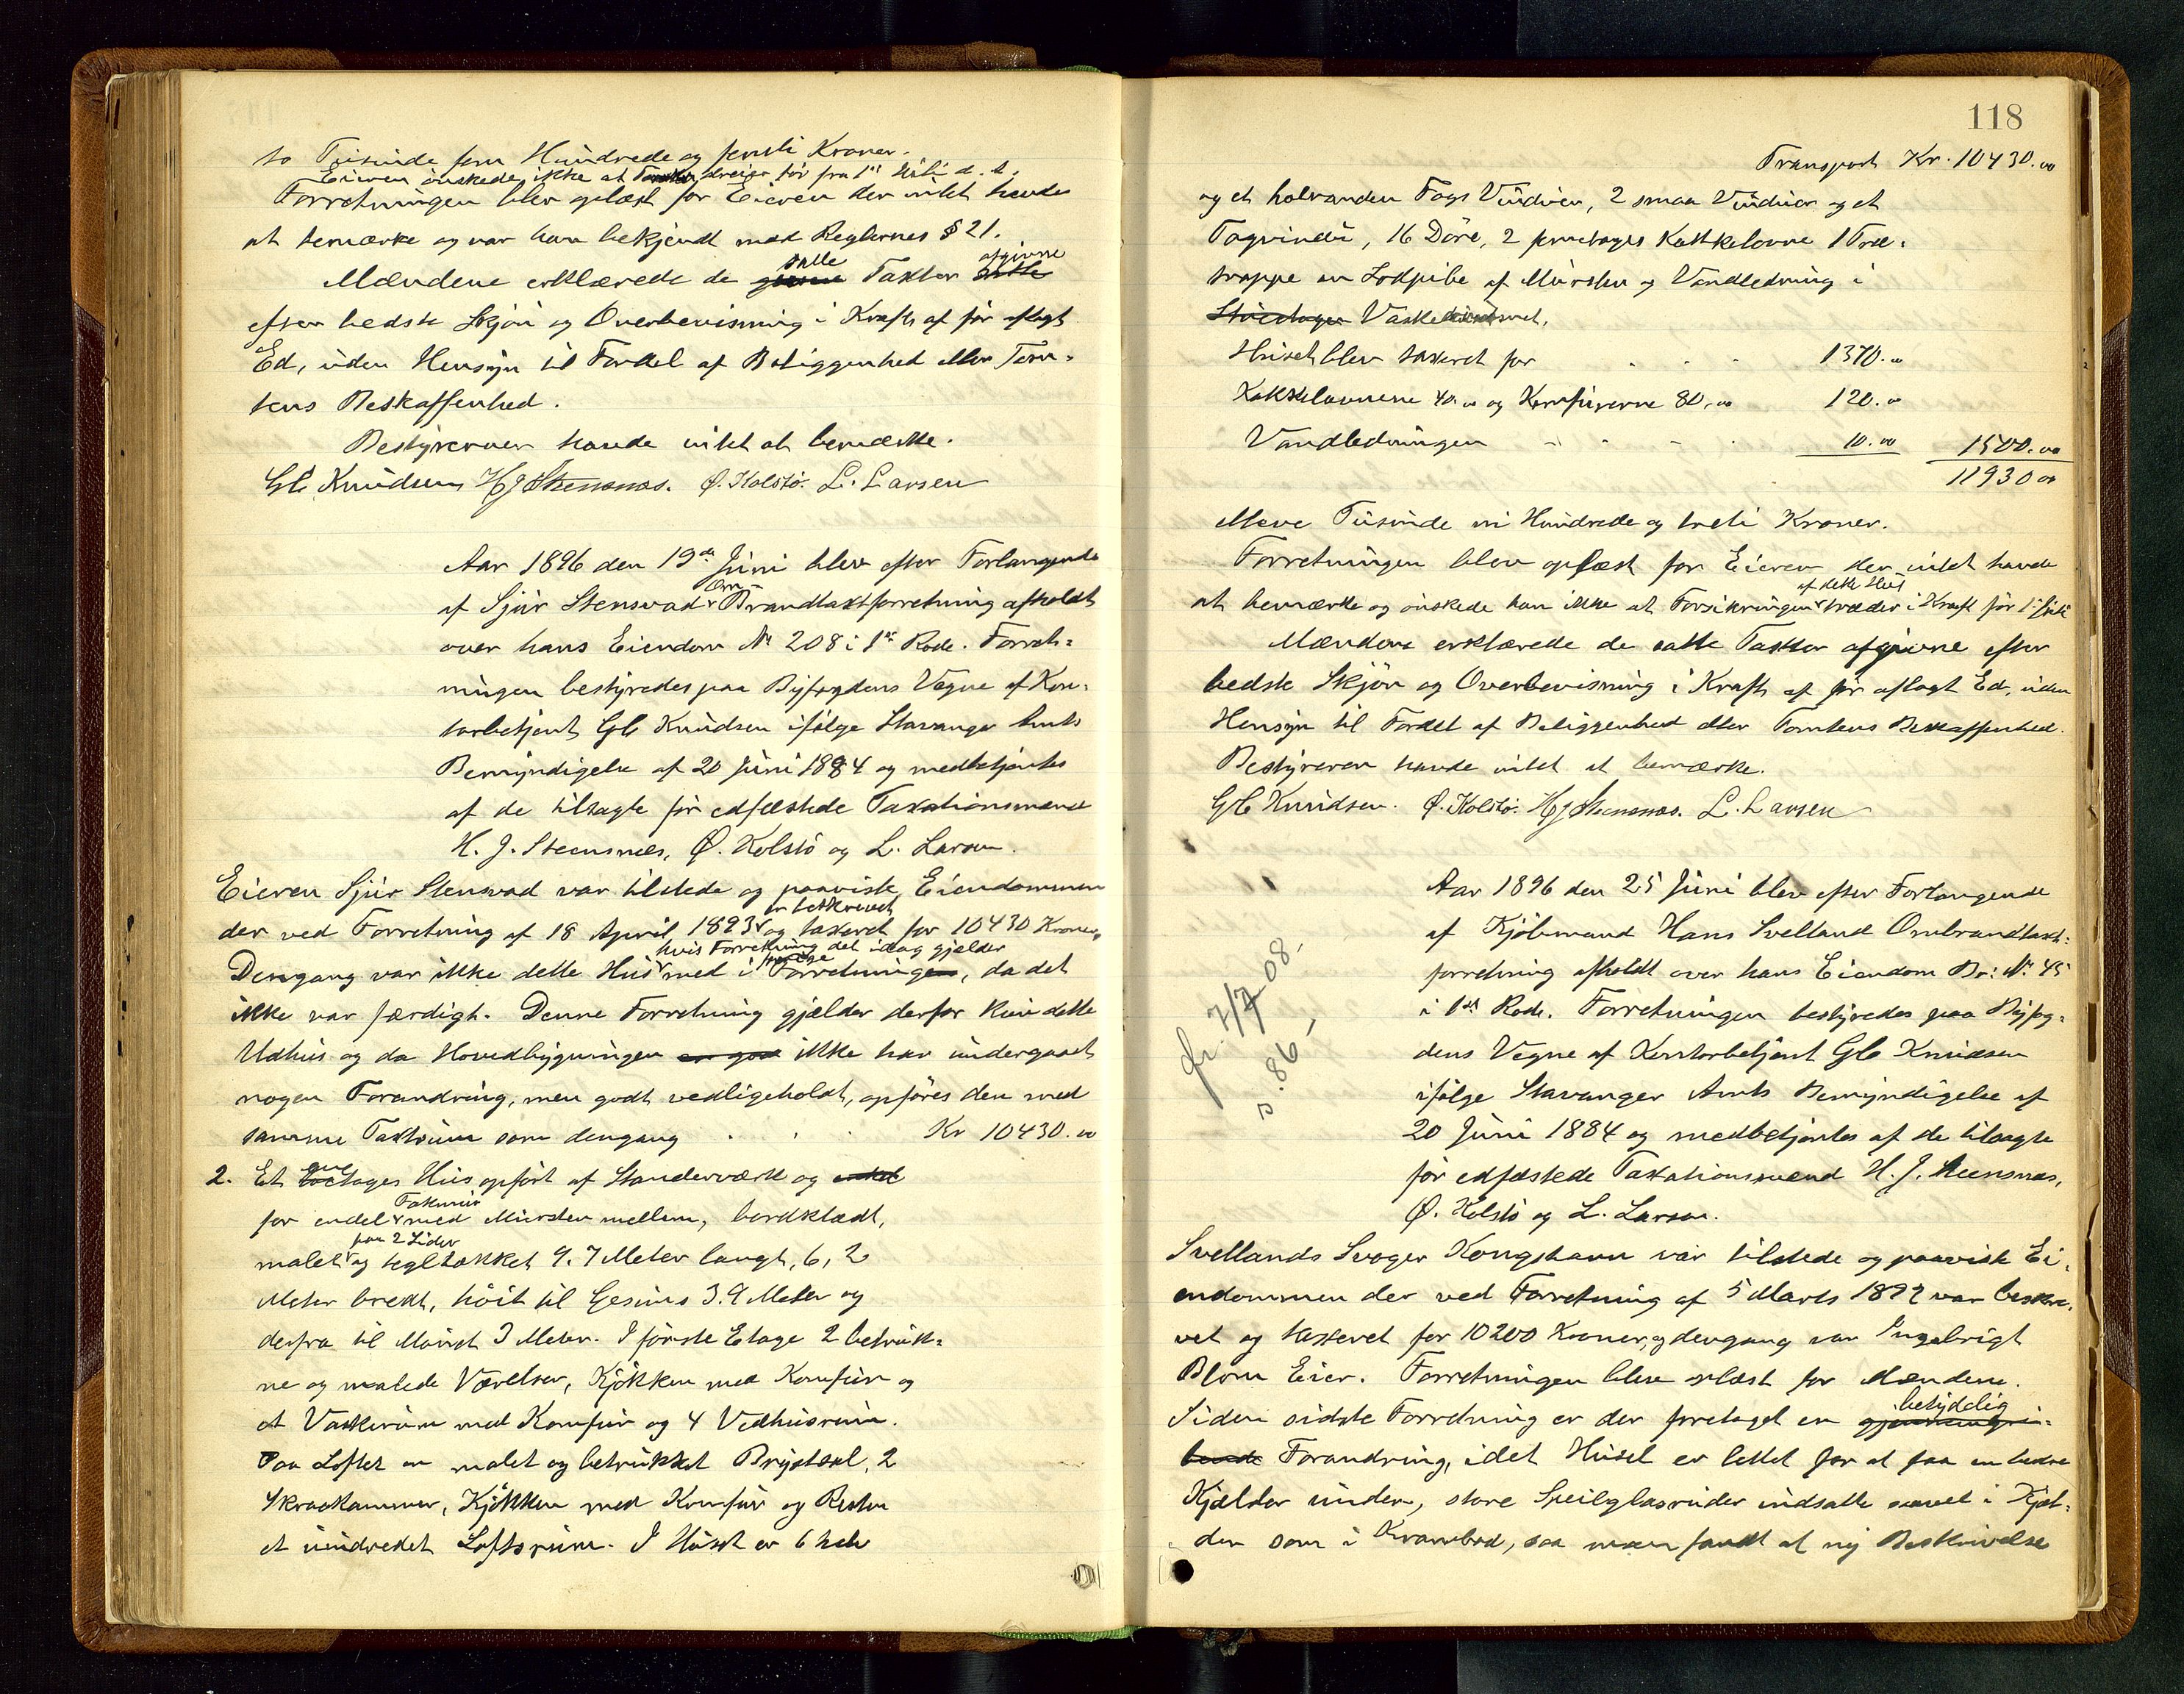 to Tusinde fem Hundrede og femti Kroner.
Eieren önskede ikke at træder för fra 1st Juli d. A.
Forretningen blev oplæst for Eieren der intet havde
at bemærke og var han bekjendt med Reglernes § 21.
Mændene erklærede de satte Taxter afgivne
efter bedste Skjön og Overbevisning i Kraft af för aflagt
Ed, uden Hensyn til Fordel af Beliggenhed eller Tom-
tens Beskaffenhed.
Bestyreren havde intet at bemærke.
Gb Knudsen HJ Steensnæs. Ø. Kolstö. L. Larsen
Aar 1896 den 19de Juni blev efter Forlangende
af Sjur Stensvad Om-Brandtaxtforretning afholdt
over hans Eiendom No 208 i 1st Rode. Forret-
ningen bestyredes paa Byfogdens Vegne af Kon-
torbetjent Gb Knudsen ifölge Stavanger Amts
Bemyndigelse af 20 Juni 1884 og medbetjentes
af de tilsagte för edfæstede Taxationsmænd
H. J. Steensnæs, Ø. Kolstö og L. Larsen.
Eieren Sjur Stensvad var tilstede og paaviste Eiendommen
der ved Forretning af 18 April 1893 er beskrevet og taxeret for 10430 Kroner,
Dengang var ikke dette Hus hvis Forretning det idag gjælder med i Forretningen, da det
ikke var færdigt. Denne Forretning gjælder derfor kun dette
Udhus og da Hovedbygningen er god ikke har undergaaet
nogen Forandring, men godt vedligeholdt, opföres den med
samme Taxtsum som dengang . . . Kr 10430.00
2. Et enetages Hus opfört af Standerværk og endel
for endel Fakmur med Mursten mellem, bordklædt,
malet paa 2 Sider og tegltækket 9.7 Meter langt, 6,2
Meter bredt, höit til Gesims 3.9 Meter og
derfra til Mönet 3 Meter. I förste Etage 2 betruk-
ne og malede Værelser, Kjökken med Komfur og
et Vaskerum med Komfur og 4 Vedhusrum.
Paa Loftet en malet og betrukket Brystsal, 2
Skraakammer, Kjökken med Komfur og Resten
et uindredet Loftsrum. I Huset er 6 hele
118
Transport Kr. 10430.00
og et halvanden Fags Vinduer, 2 smaa Vinduer og et
Tagvindu, 16 Döre, 2 Kakkelovne 1 Træ-
trappe en Lodpibe af Mursten og Vandledning i
Vaskerummet.
Huset blev taxeret for . . . 1370.00
Kakkelovnene 40.00 og Komfurerne 80.00 120.00
Vandledningen - - - . 10.00 1500.00
11930 00
Elleve Tusinde ni Hundrede og treti Kroner.
Forretningen blev oplæst for Eieren der intet havde
at bemærke og önskede han ikke at Forsikringen af dette Hus træder i Kraft för 1st Juli
Mændene erklærede de satte Taxter afgivne efter
bedste Skjön og Overbevisning i Kraft af för aflagt Ed, uden
Hensyn til Fordel af Beliggenhed eller Tomtens Beskaffenhed.
Bestyreren havde intet at bemærke.
Gb Knudsen. Ø. Kolstö. HJ Steensnæs. L. Larsen
Aar 1896 den 25 Juni blev efter Forlangende
af Kjöbmand Hans Svelland Ombrandtaxt-
forretning afholdt over hans Eiendom Br: No 45
i 1st Rode. Forretningen bestyredes paa Byfog-
dens Vegne af Kontorbetjent Gb Knudsen
ifölge Stavanger Amts Bemyndigelse af
20 Juni 1884 og medbetjentes af de tilsagte
för edfæstede Taxationsmænd H. J. Steensnæs,
Ø. Kolstö og L. Larsen.
7/7-08-
s. 86-
Svellands Svoger Kongshavn var tilstede og paaviste Ei-
endommen der ved Forretning af 5 Marts 1892 var beskre-
vet og taxeret for 10200 Kroner, og dengang var Ingebrigt
Blom Eier. Forretningen blev oplæst for Mændene.
Siden sidste Forretning er der foretaget en betydelig gjennemgri-
bende Forandring, idet Huset er lettet for at faa en bedre
Kjælder under, store Speilglasruder indsatte saavel i Kjæl-
der som i Krambod, saa man fandt at ny Beskrivelse